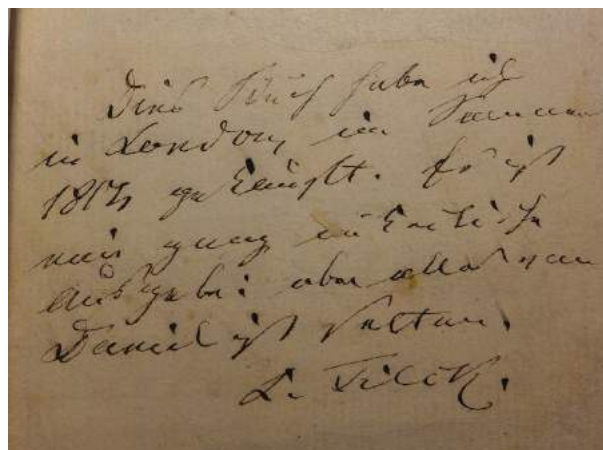 Dies Buch habe ich
in London, im Sommer
1817 gekauft. Es ist
eine ganz unkritische
Ausgabe: aber alles von
Daniel ist selten.
L. Tieck.